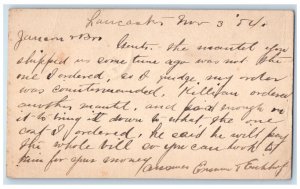 Lancaster Nov 3 '84.
Janson & Bro
Gents. the mantel you
shipped us some time ago was not the
one I ordered, so I judge, my order
was countermanded. Killian ordered
another mantel, and paid enough on
it to bring it down to what the one
I ordered, he said he will pay
the whole bill so you can look to
him for your money
Answer